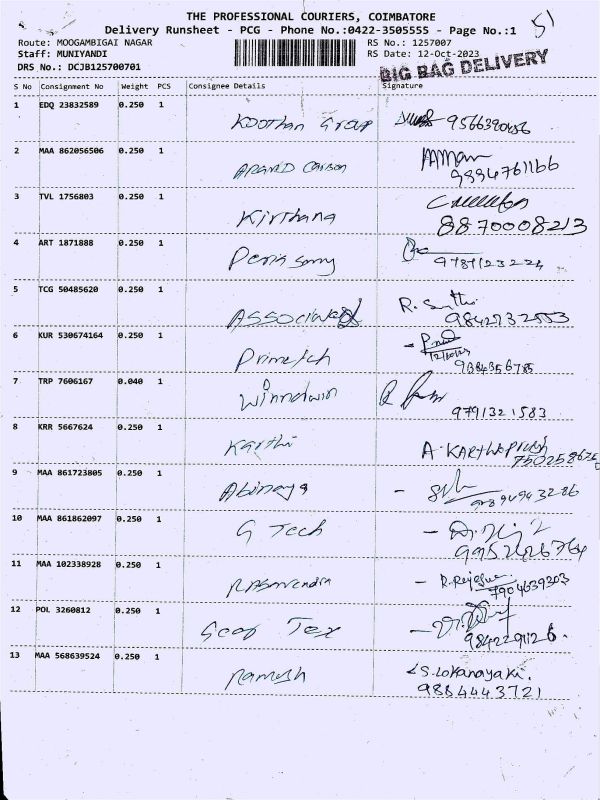 51
THE PROFESSIONAL COURIERS, COIMBATORE
Delivery Runsheet - PCG - Phone No.:0422-3505555 - Page No.:1
Route: MOOGAMBIGAI NAGAR RS No.: 1257007
Staff: MUNIYANDI RS Date: 12-Oct-2023
DRS No.: DCJB125700701 BIG BAG DELIVERY
S No Consignment No Weight PCS Consignee Details Signature
1 EDQ 23832589 0.250 1
Koothan Group 9566390456
2 MAA 862056506 0.250 1
Aravind Carbon 9894761166
3 TVL 1756803 0.250 1
Kirthana 8870008213
4 ART 1871888 0.250 1
Peria samy 9789123224
5 TCG 50485620 0.250 1
Associates 9842732553
6 KUR 530674164 0.250 1
Primetch 12/10/23
9384356785
7 TRP 7606167 0.040 1
Winndwin
9791321583
8 KRR 5667624 0.250 1
Karthi A. KARTHIPRIYA
750258675
9 MAA 861723805 0.250 1
Abinaya
9894943286
10 MAA 861862097 0.250 1
G Tech
9952626764
11 MAA 102338928 0.250 1
Ragavendra R. Rajeswari
7904639303
12 POL 3260812 0.250 1
Geo Tex
9842291126.
13 MAA 568639524 0.250 1
Ramesh S. Lokanayaki.
9884443721